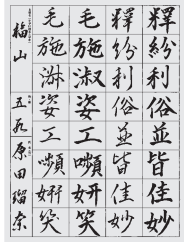 釋紛利俗並皆佳妙
釋紛利俗並皆佳妙
毛施淑姿工嚬妍笑
毛施淑姿工嚬妍笑
福山 原田瑠奈